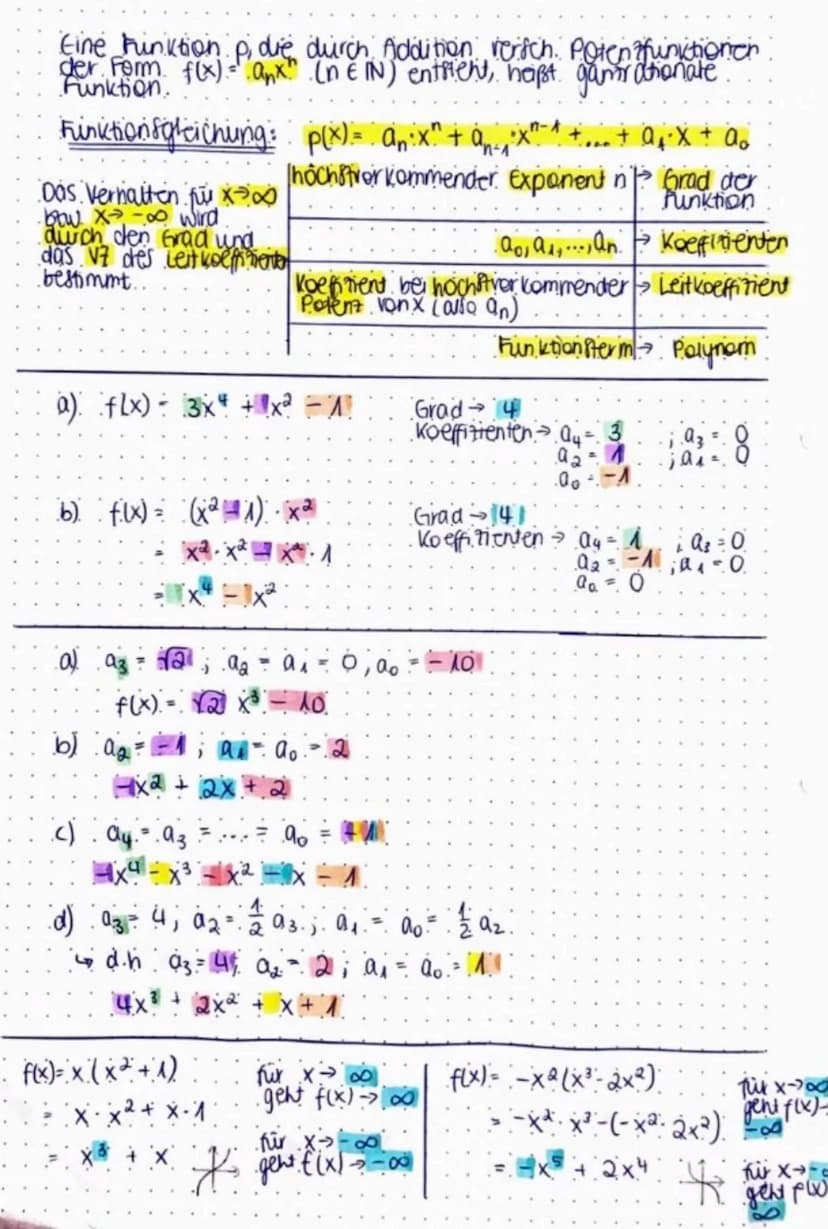 Eine Funktion p, die durch Addition versch. Potenzfunktionen
der Form f(x) = aₙxⁿ (n ∈ ℕ) entsteht, heißt ganzrationale
Funktion.
Funktionsgleichung: p(x) = aₙ·xⁿ + aₙ₋₁·xⁿ⁻¹ + ... + a₁·x + a₀
Das Verhalten für x→∞
bzw x→ -∞ wird
durch den Grad und
das VZ des Leitkoeffizienten
bestimmt.
höchstvorkommender Exponent n → Grad der
Funktion
a₀, a₁, ..., aₙ → Koeffizienten
Koeffizient bei höchstvorkommender → Leitkoeffizient
Potenz von x (also aₙ)
Funktionsterm → Polynom
a) f(x) = 3x⁴ + 1x² - 1
Grad → 4
Koeffizienten → a₄ = 3 ; a₃ = 0
a₂ = 1 ; a₁ = 0
a₀ = -1
b) f(x) = (x² - 1) · x²
= x² · x² - x² · 1
= 1x⁴ - 1x²
Grad → 4
Koeffizienten → a₄ = 1 ; a₃ = 0
a₂ = -1 ; a₁ = 0
a₀ = 0
a) a₃ = √2 ; a₂ = a₁ = 0, a₀ = -10
f(x) = √2 x³ - 10
b) a₂ = -1 ; a₁ = a₀ = 2
-x² + 2x + 2
c) a₄ = a₃ = ... = a₀ = -1
-x⁴ - x³ - x² - x - 1
d) a₃ = 4, a₂ = 1/2 a₃ ; a₁ = a₀ = 1/2 a₂
↳ d.h a₃ = 4; a₂ = 2 ; a₁ = a₀ = 1
4x³ + 2x² + x + 1
f(x) = x (x² + 1)
= x · x² + x · 1
= x³ + x
für x→ ∞
geht f(x) → ∞
für x→ -∞
geht f(x) → -∞
f(x) = -x² (x³ - 2x²)
= -x² · x³ - (-x² · 2x²)
= -x⁵ + 2x⁴
für x→∞
geht f(x)→
-∞
für x→ -
geht f(x)
∞